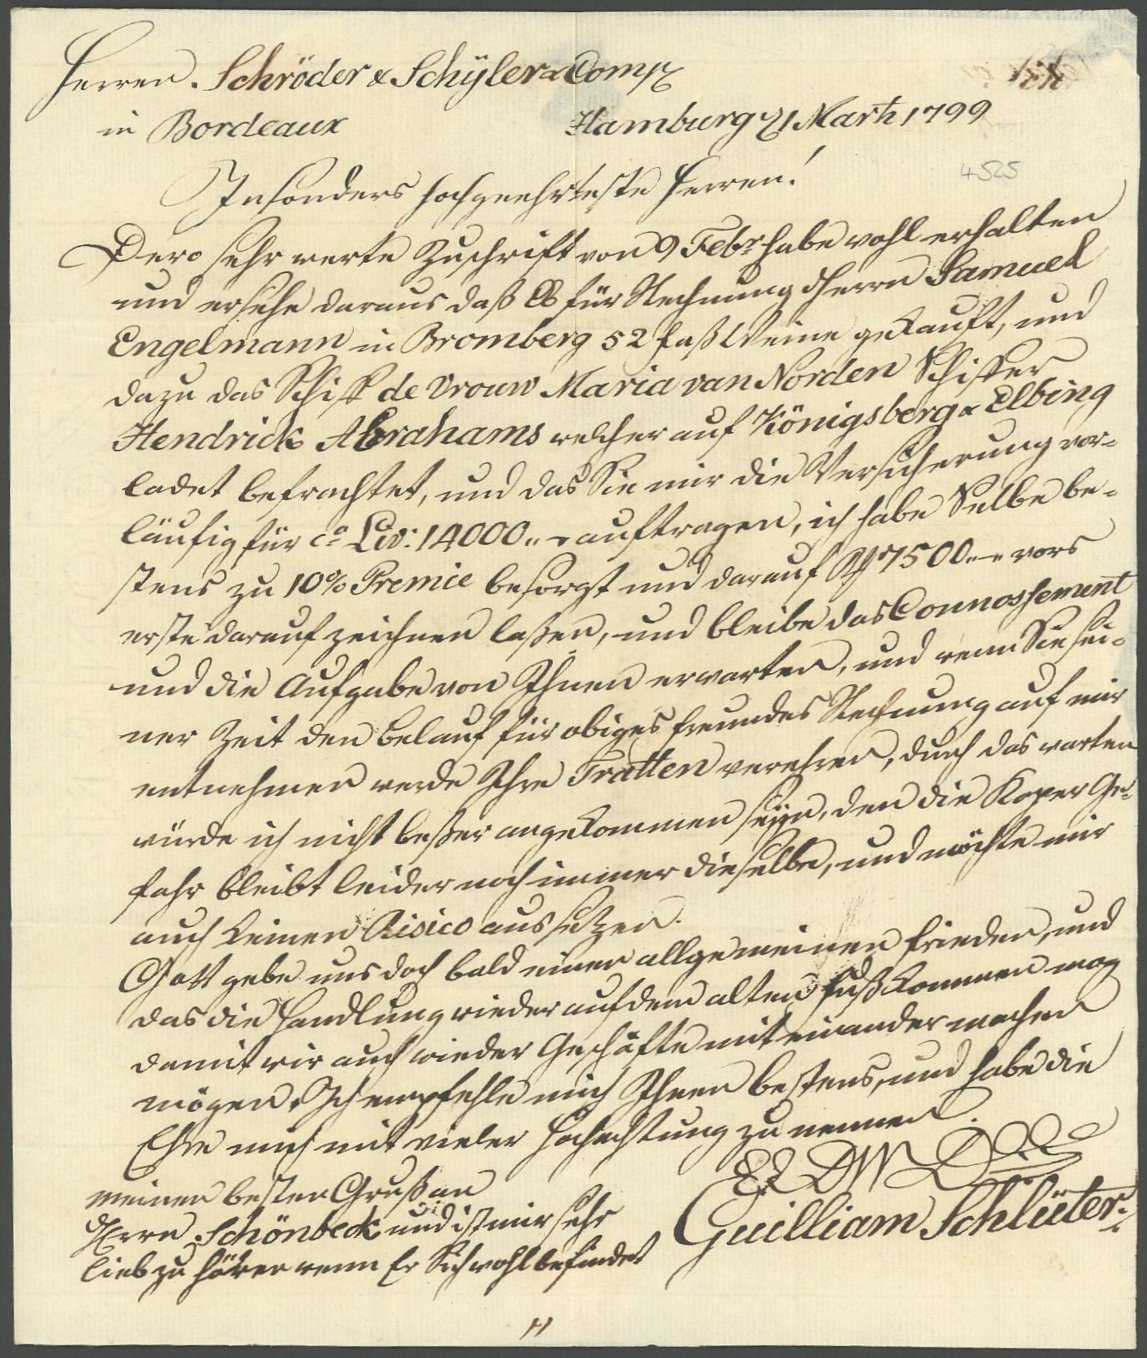 Herren Schröder & Schÿler & Comp
in Bordeaux
Hamburg 1 Marth 1799
4525
Insonders hochgeehrteste Herren!
Dero sehr werte Zuschrift von 9 Febr habe wohl erhalten
und ersehe daraus daß für Rechnung Herrn Samuel
Engelmann in Bromberg 52 faß Weine gekauft, und
dazu das Schiff de Vrouw Maria van Norden Schiffer
Hendrick Abrahams welcher auf Königsberg & Elbing
ladet befrachtet, und das Sie mir die Versicherung vor-
läufig für ca Liv: 14000 „ - auftragen, ich habe Selbe be-
stens zu 10% Premie besorgt und darauf 7500 „ - vors
erste darauf zeichnen laßen, und bleibe das Connossement
und die Aufgabe von Ihnen erwarten, und wenn Sie sei-
ner Zeit den belauf für obiges freundes Rechnung auf mir
entnehmen werde Ihre Tratten verehren, durch das warten
würde ich nicht beßer angekommen seÿn, den die Kaper Ge-
fahr bleibt leider noch immer dieselbe, und möchte mir
auch keinen Risico aussetzen.
Gott gebe uns doch bald einen allgemeinen frieden, und
das die Handlung wieder auf dem alten fuß kommen mag
damit wir auch wieder Geschäfte mit einander machen
mögen, Ich empfehle mich Ihnen bestens, und habe die
Ehre mich mit vieler Hochachtung zu nennen.
meinen besten Gruß an
Herrn Schönbeck und ist mir sehr
lieb zu hören wenn Er Sich wohl befindet
Guilliam Schlüter